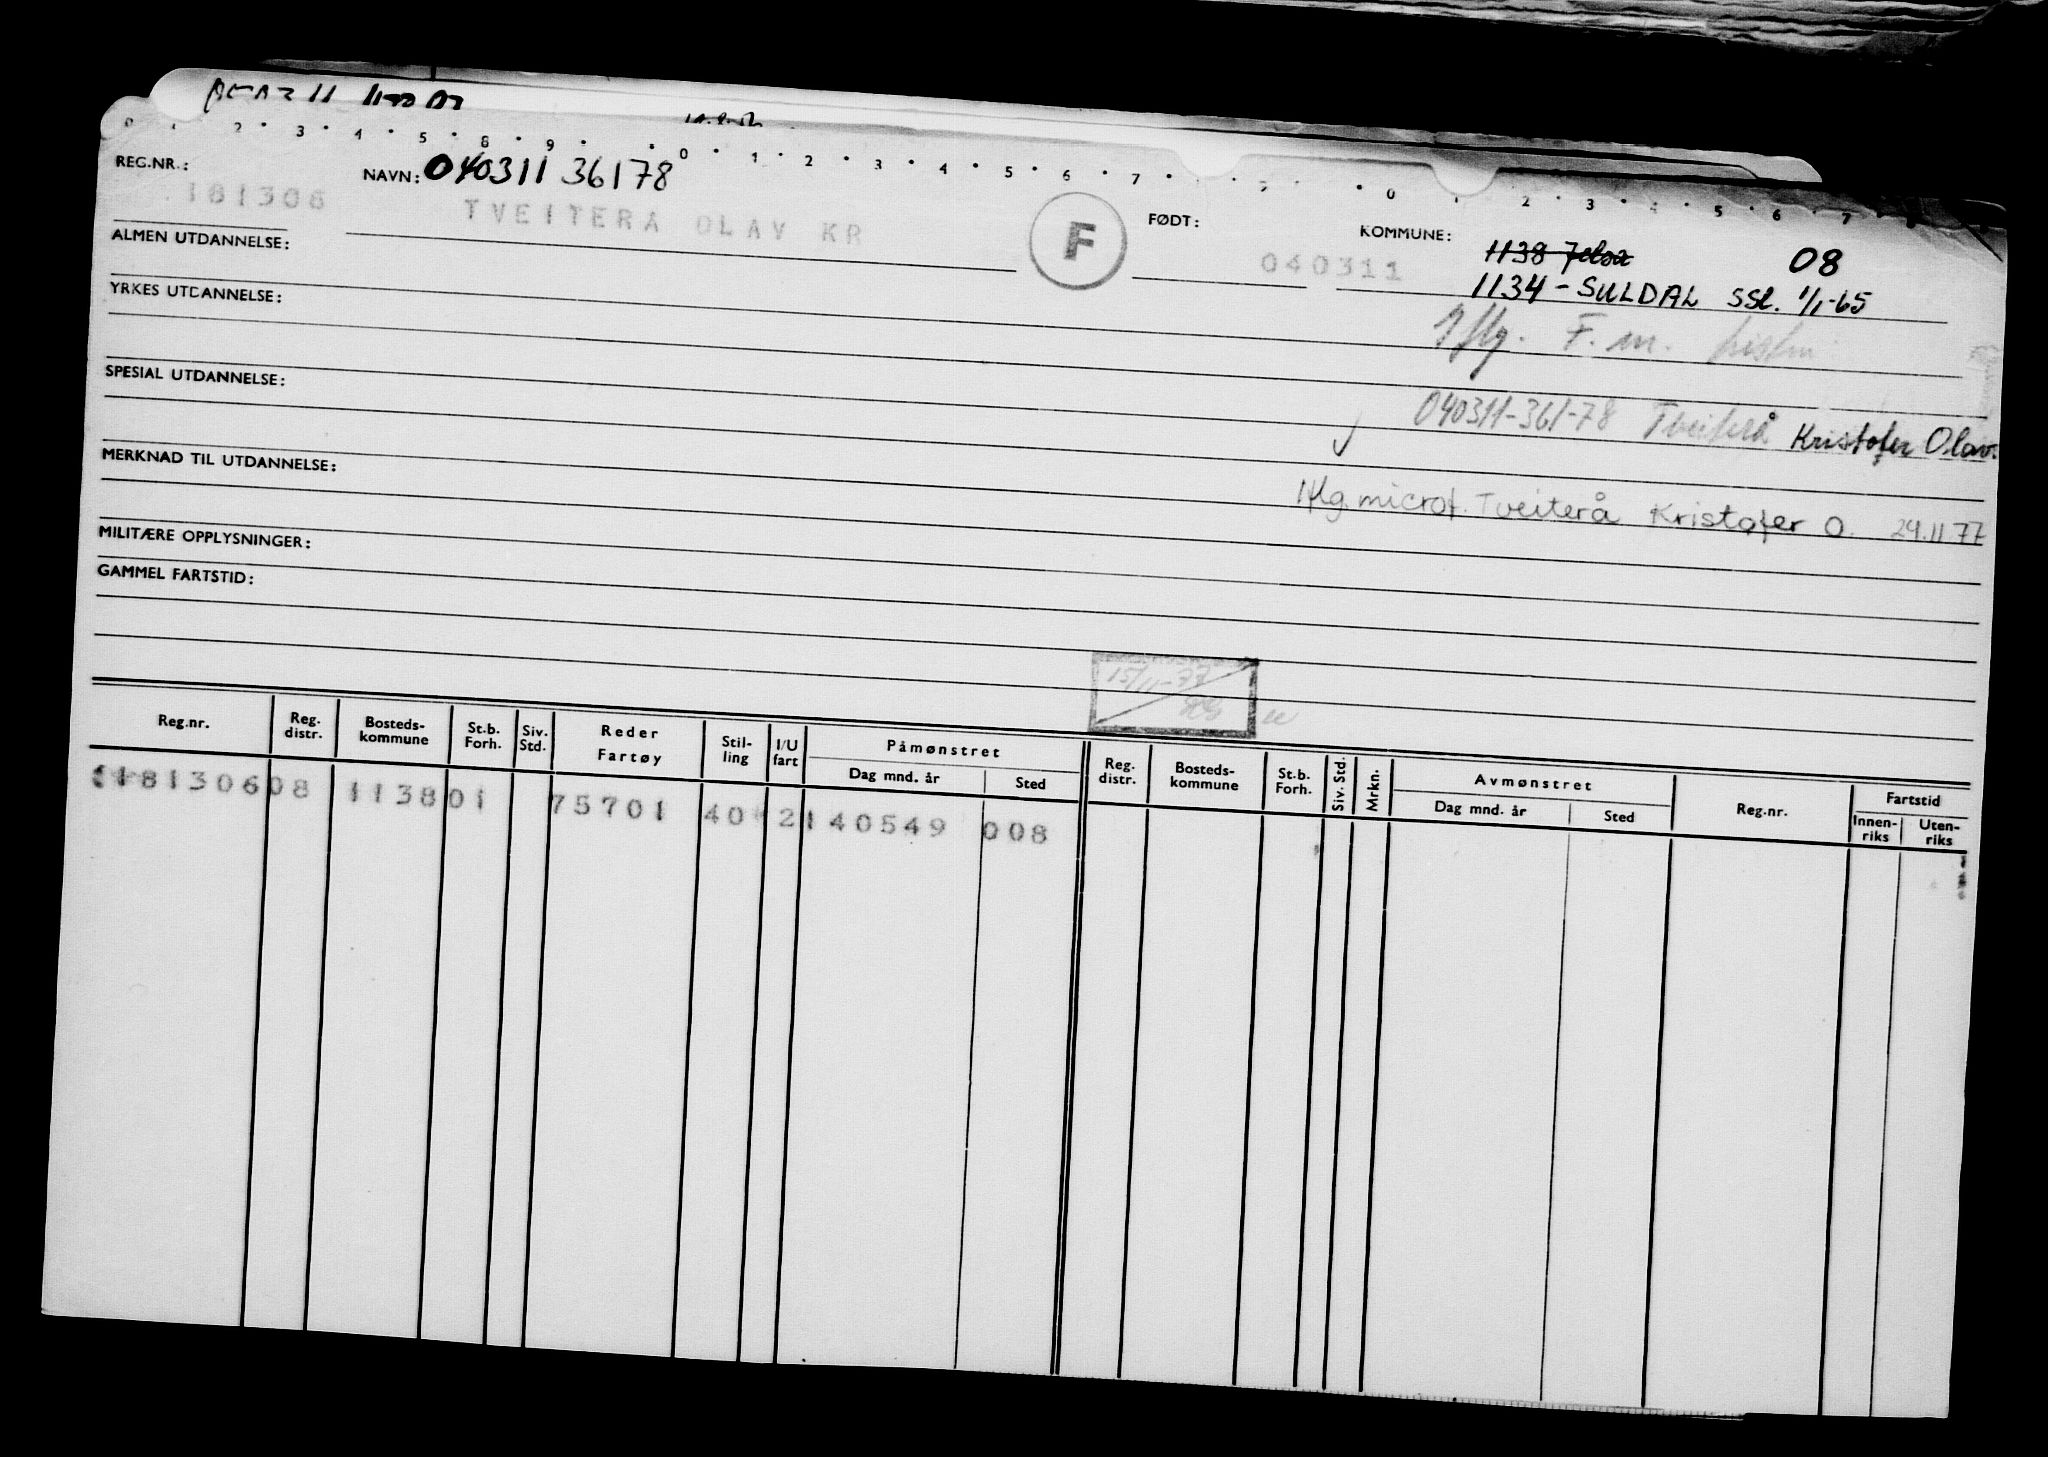 0 1 2 3 4 5 8 9 0 1 2 3 4 5 6 7 0 1 2 3 4 5 6 7
REG.NR.: 181306 NAVN: 040311 36178
TVEITERA OLAV KR F FØDT: 040311 KOMMUNE: 1138 Jelsa 08
1134 - SULDAL SSL. 1/1-65
ALMEN UTDANNELSE:
YRKES UTDANNELSE:
Iflg. F.m.
SPESIAL UTDANNELSE:
040311-361-78 Tveiterå Kristofer Olav.
MERKNAD TIL UTDANNELSE:
Iflg. microf. Tveiterå Kristofer O. 24.11.77
MILITÆRE OPPLYSNINGER:
GAMMEL FARTSTID:
15/11-77
Reg.nr. Reg. distr. Bosteds-kommune St.b. Forh. Siv. Std. Reder Fartøy Stil-ling I/U fart Påmønstret Dag mnd. år Sted Reg. distr. Bosteds-kommune St.b. Forh. Siv. Std. Mrkn. Avmønstret Dag mnd. år Sted Reg.nr. Fartstid Innen-riks Uten-riks
181306 08 1138 01 75701 40 2 140549 008